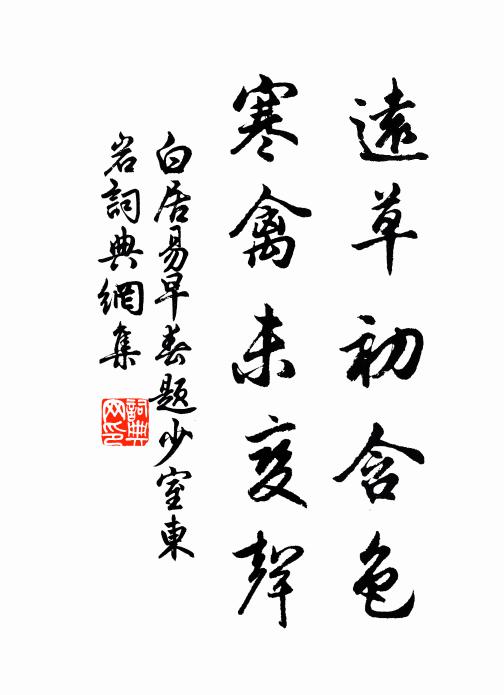 遠草初含色
寒禽未變聲
白居易早春題少室東
岩詞典網集
詞典
网印